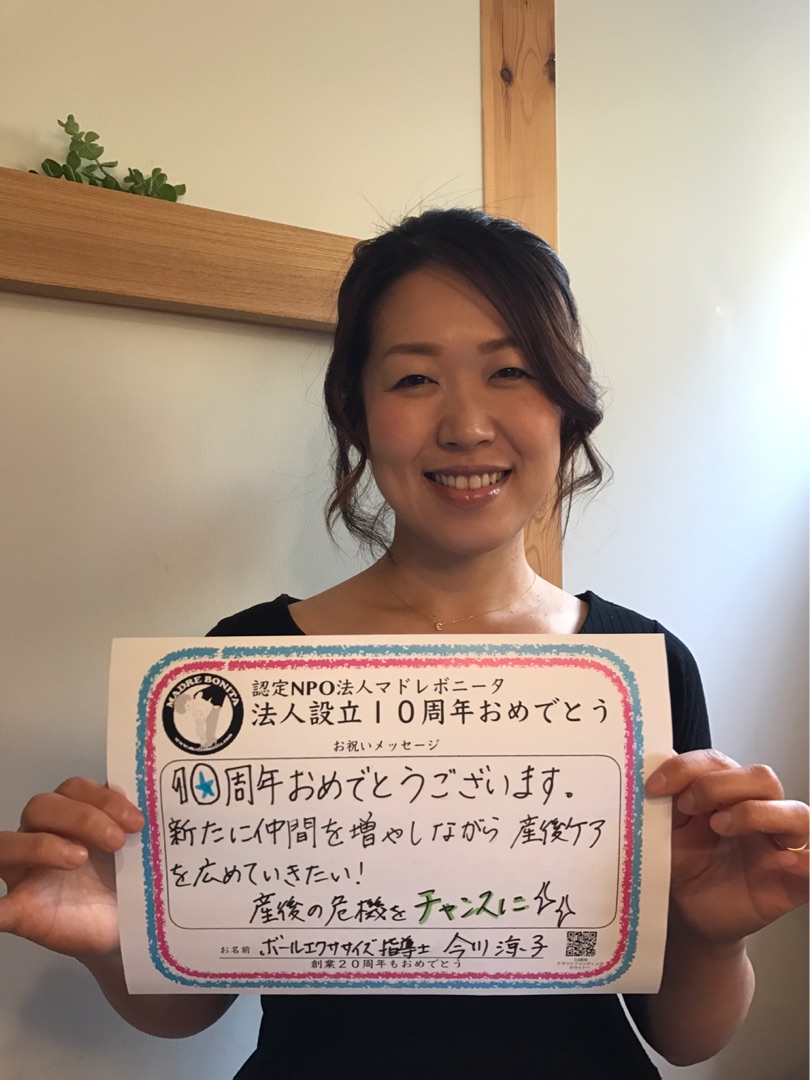 MADRE BONITA
認定NPO法人マドレボニータ
法人設立10周年おめでとう
お祝いメッセージ
10周年おめでとうございます。
新たに仲間を増やしながら 産後ケア
を広めていきたい!
産後の危機を チャンスに
お名前 ボールエクササイズ指導士 今川 涼子
創業20周年もおめでとう